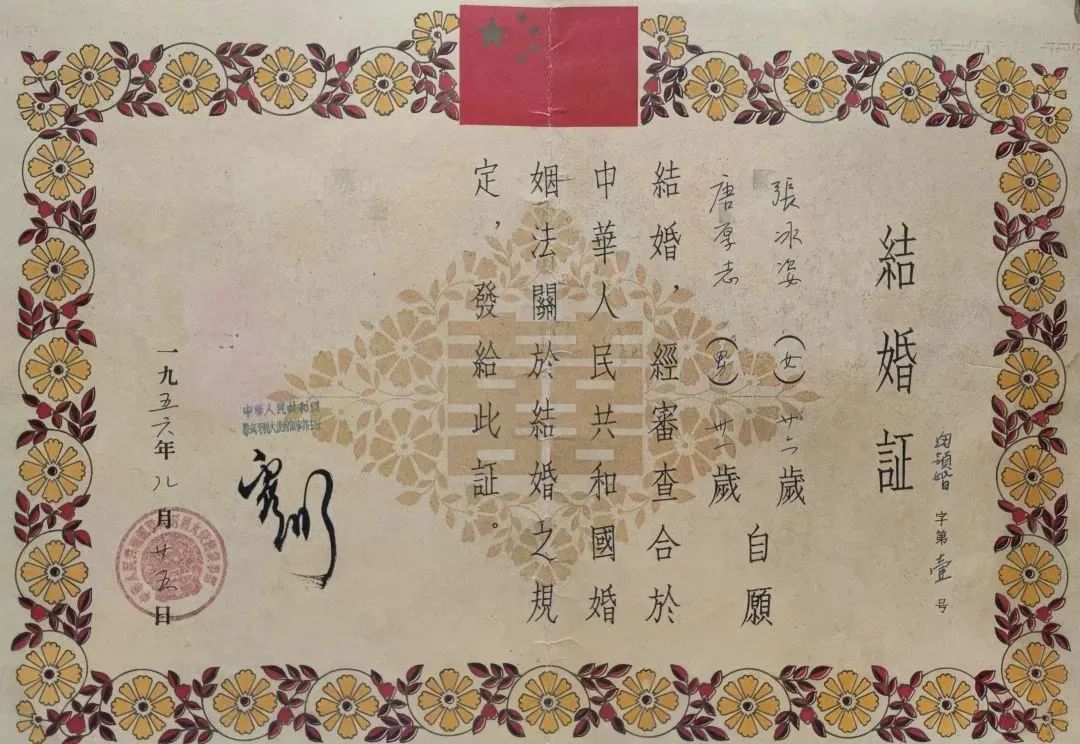 領婚字第壹号
結婚証
張冰姿（女）廿六歲
唐厚志（男）卅一歲
自願
結婚，經審查合於
中華人民共和國婚
姻法關於結婚之規
定，發給此証。
中華人民共和國
一九五六年八月廿五日